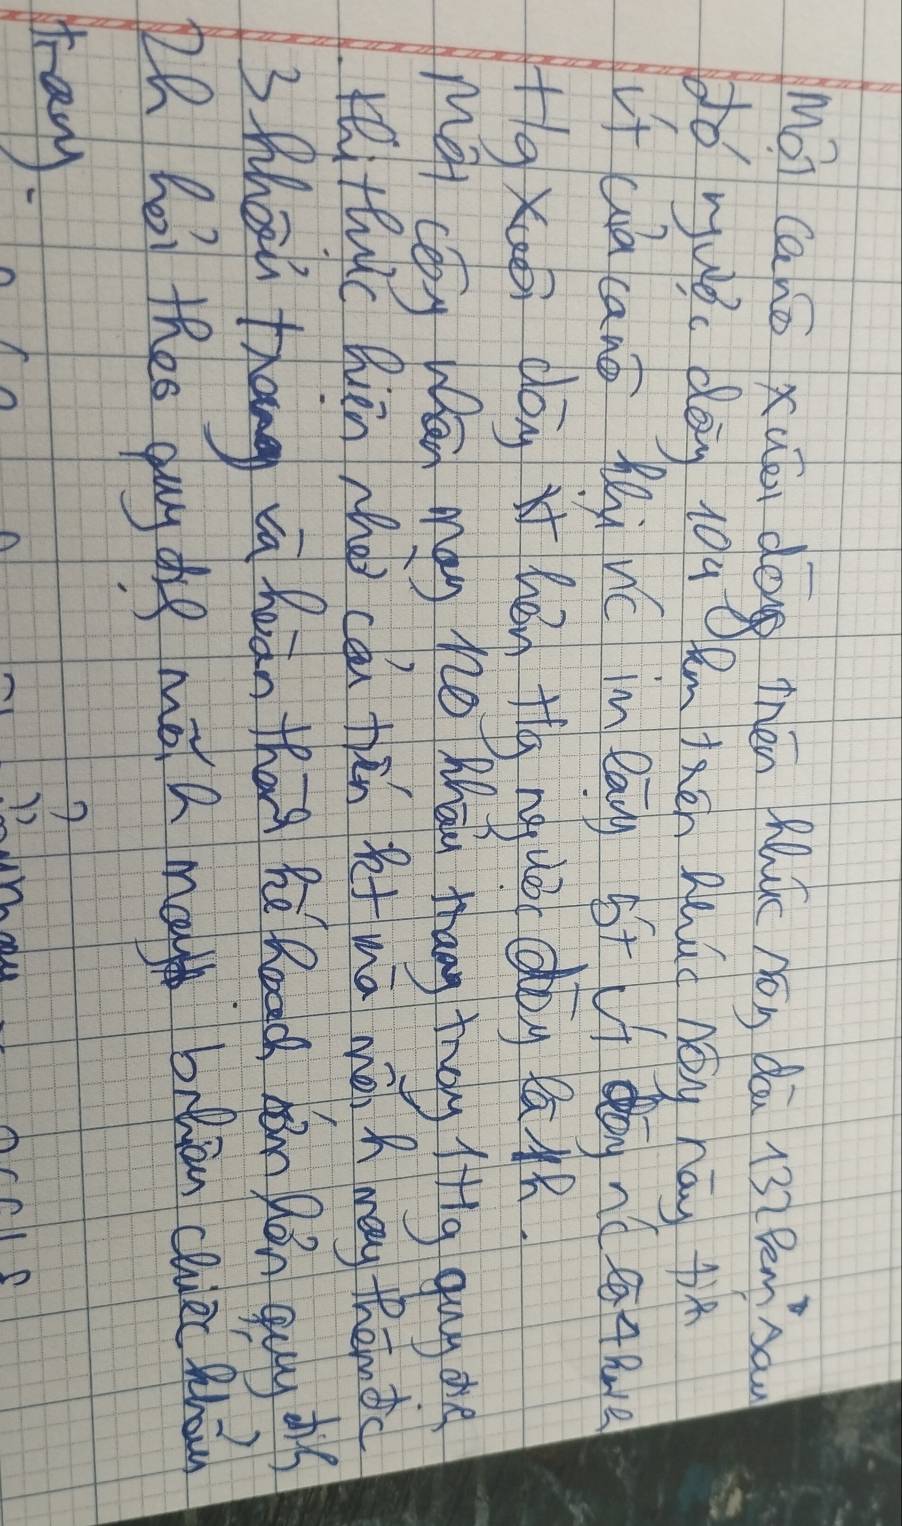 Một canô xuôi dòng trên khúc sông dài 132 km sau
đó ngược dòng 104 km trên khúc sông này tíh
vt của canô khi nc in lặng bít vt dòng nc là 4 km/h
tg xuôi dòng ít hơn tg ngược dòng là 1h.
Một công nhân may 120 khẩu trang trong 1 tg quy địh
. khi thực hiện nhờ cải tiến kt mà mỗi h may thêm đc
3 khẩu trang và hoàn thàh kế hoạch sớm hơn quy địh
2h hỏi theo quy địh mỗi h may bnhiêu chiếc khẩu
trang.